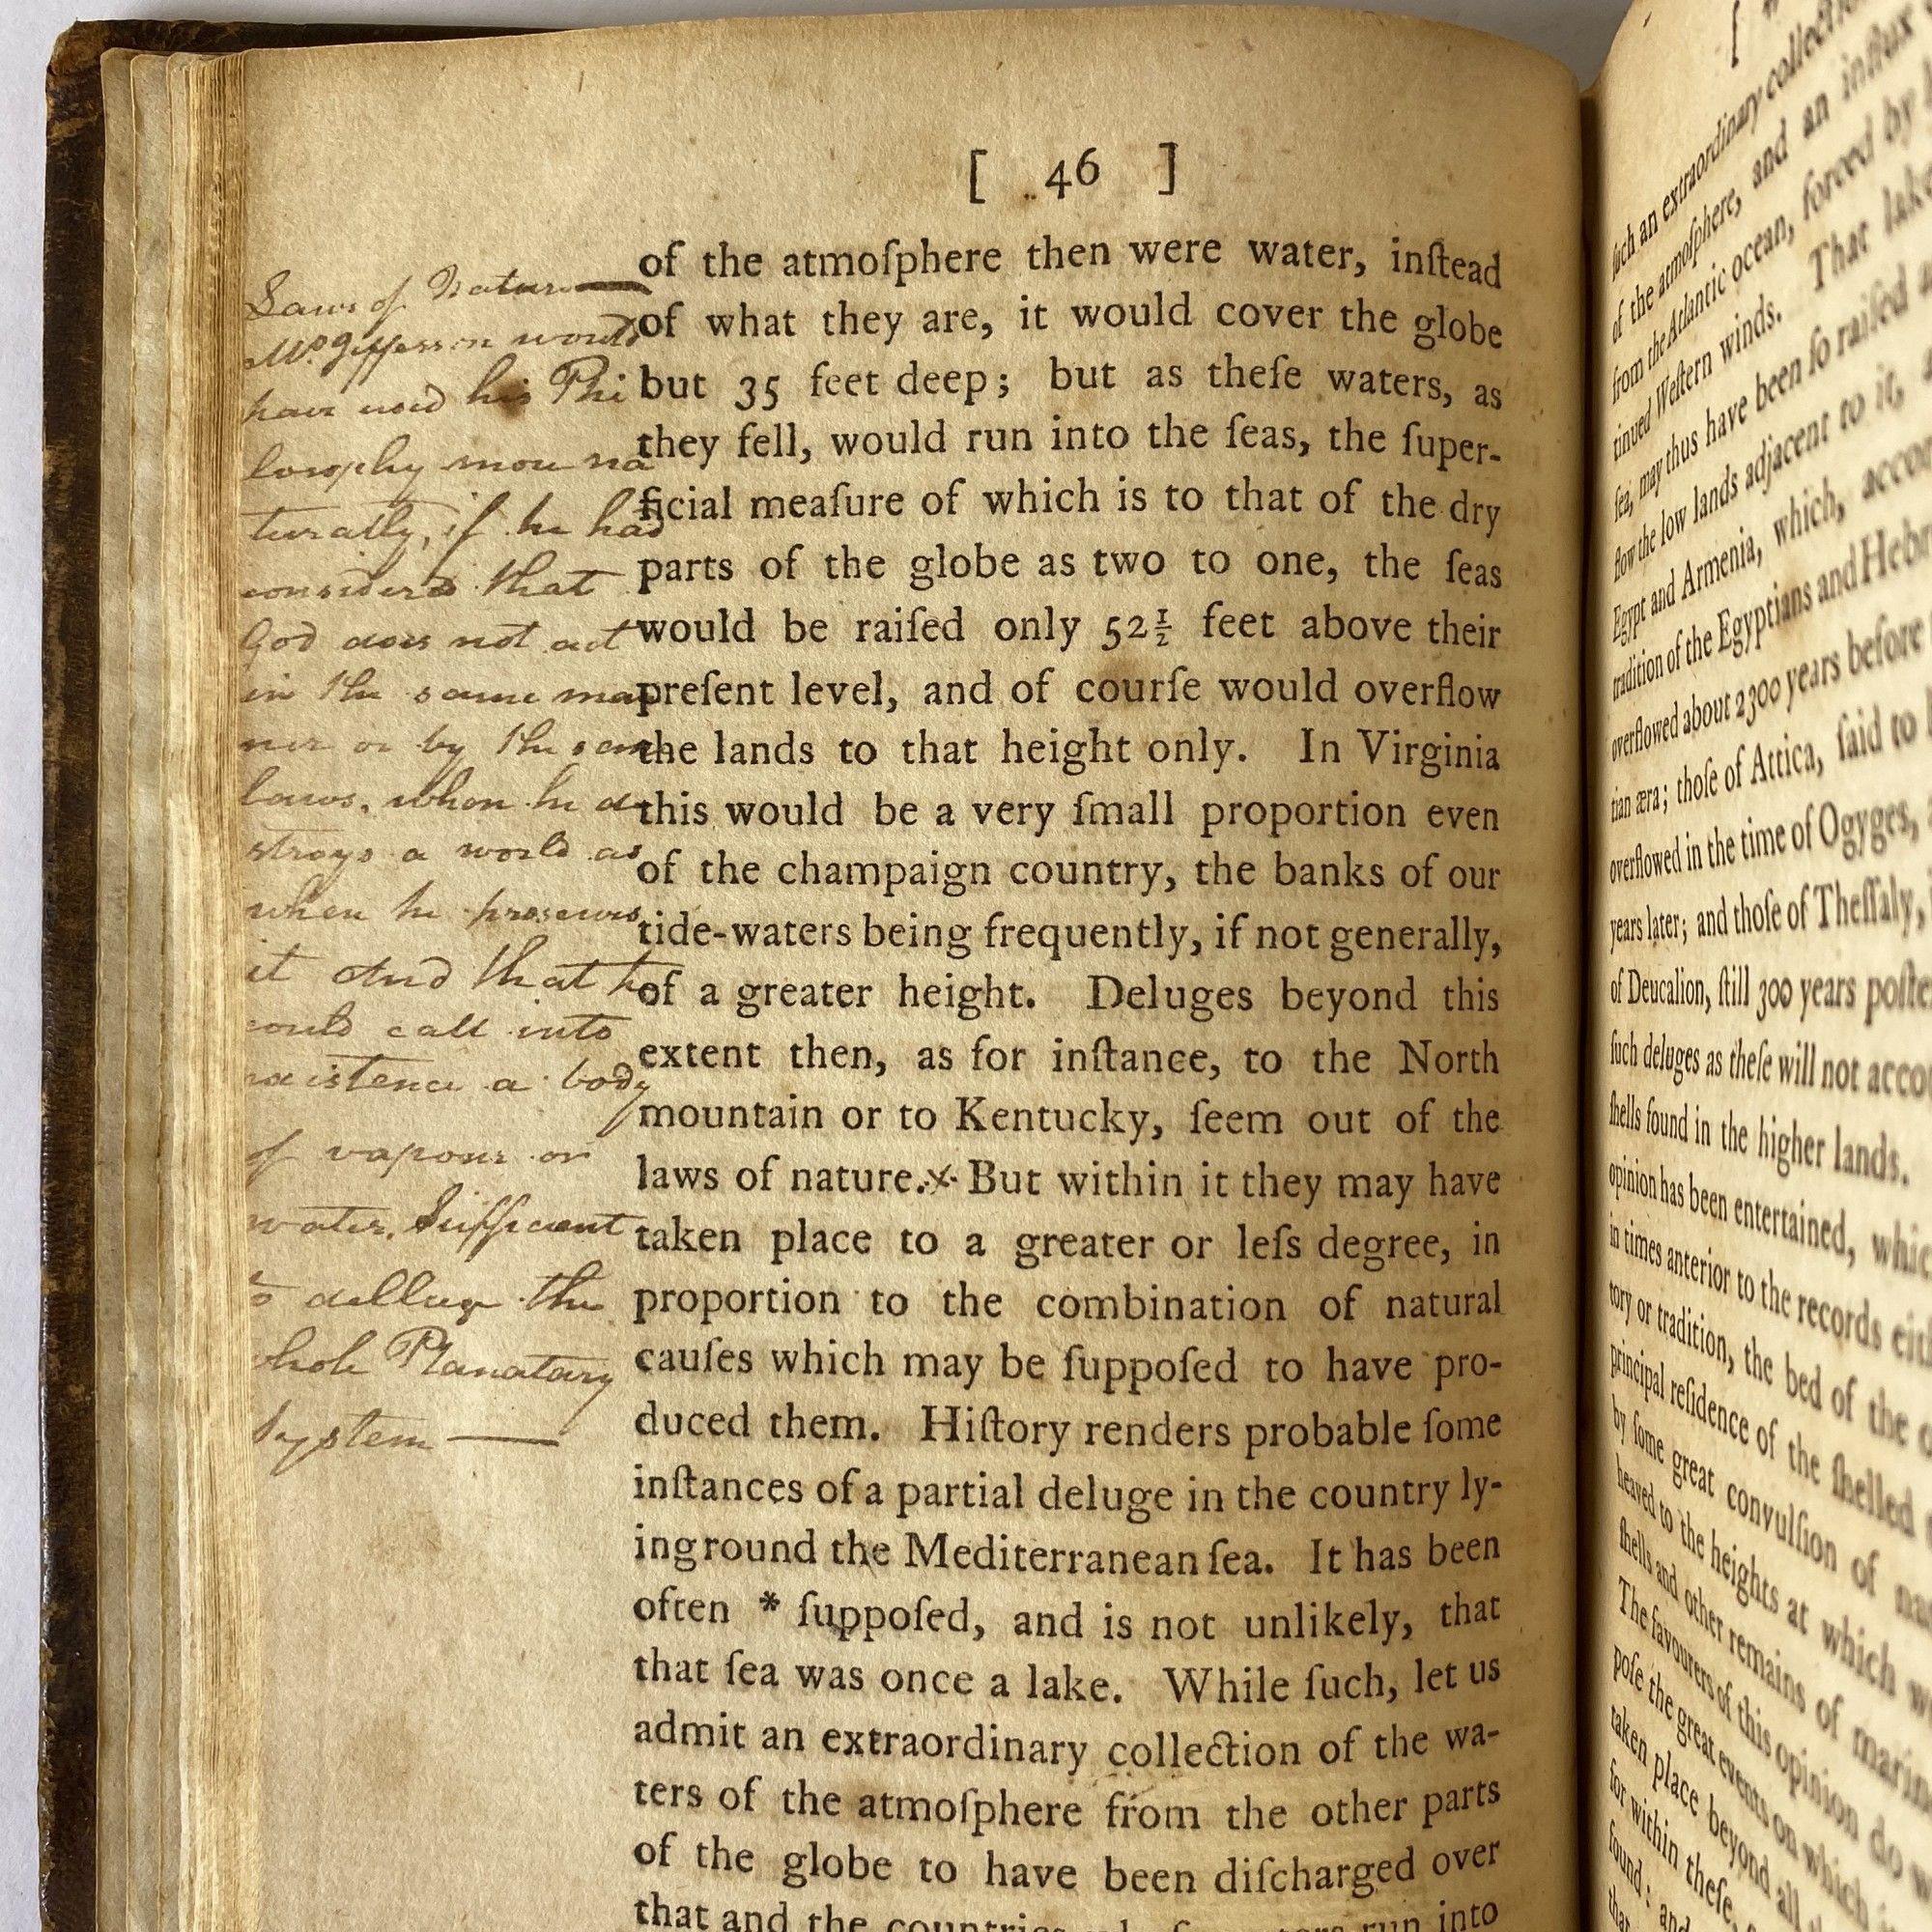 [ 46 ]
of the atmoſphere then were water, inſtead
of what they are, it would cover the globe
but 35 feet deep; but as theſe waters, as
they fell, would run into the ſeas, the ſuper-
ficial meaſure of which is to that of the dry
parts of the globe as two to one, the ſeas
would be raiſed only 52½ feet above their
preſent level, and of courſe would overflow
the lands to that height only. In Virginia
this would be a very ſmall proportion even
of the champaign country, the banks of our
tide-waters being frequently, if not generally,
of a greater height. Deluges beyond this
extent then, as for inſtance, to the North
mountain or to Kentucky, ſeem out of the
laws of nature.× But within it they may have
taken place to a greater or leſs degree, in
proportion to the combination of natural
cauſes which may be ſuppoſed to have pro-
duced them. Hiſtory renders probable ſome
inſtances of a partial deluge in the country ly-
ing round the Mediterranean ſea. It has been
often * ſuppoſed, and is not unlikely, that
that ſea was once a lake. While ſuch, let us
admit an extraordinary collection of the wa-
ters of the atmoſphere from the other parts
of the globe to have been diſcharged over
that and the countries run into
Laws of Nature
Mr. Jefferson would
have used his Phi
losophy more na
turally, if he had
considered that
God does not act
in the same man
ner or by the same
laws, when he de
stroys a world as
when he preserves
it And that he
could call into
existence a body
of vapour or
water, Sufficient
to delluge the
whole Planatary
System —
ſuch an extraordinary collection
of the atmoſphere, and an influx
from the Atlantic ocean, forced by
tinued Weſtern winds. That lake
ſea, may thus have been ſo raiſed
flow the low lands adjacent to it,
Egypt and Armenia, which,
tradition of the Egyptians and
overflowed about 2300 years before
tian æra; thoſe of Attica, ſaid to
overflowed in the time of Ogyges,
years later; and thoſe of Theſſaly,
of Deucalion, ſtill 300 years
ſuch deluges as theſe will not
ſhells found in the higher lands.
opinion has been entertained,
in times anterior to the records
tory or tradition, the bed of the
principal reſidence of the ſhelled
by ſome great convulſion of
heaved to the heights at which
ſhells and other remains of
The favourers of this opinion do
poſe the great events on which
taken place beyond all
for within theſe,
found: and